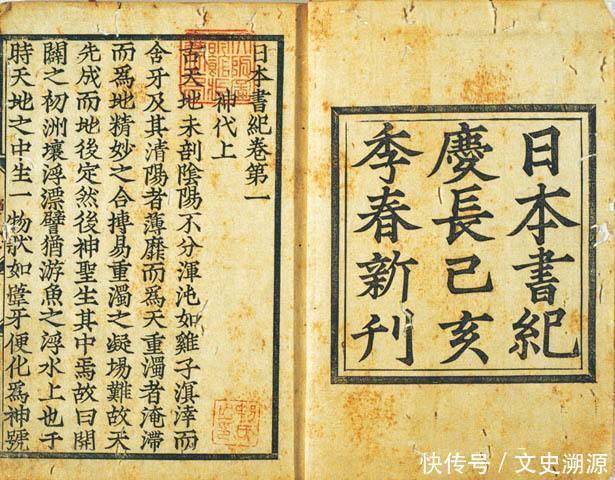 日本書紀
慶長己亥
季春新刊
日本書紀卷第一
神代上
古天地未剖陰陽不分渾沌如雞子溟涬而
含牙及其清陽者薄靡而爲天重濁者淹滯
而爲地精妙之合摶易重濁之凝場難故天
先成而地後定然後神聖生其中焉故曰開
闢之初洲壤浮漂譬猶游魚之浮水上也于
時天地之中生一物狀如葦牙便化爲神號
快传号/文史溯源